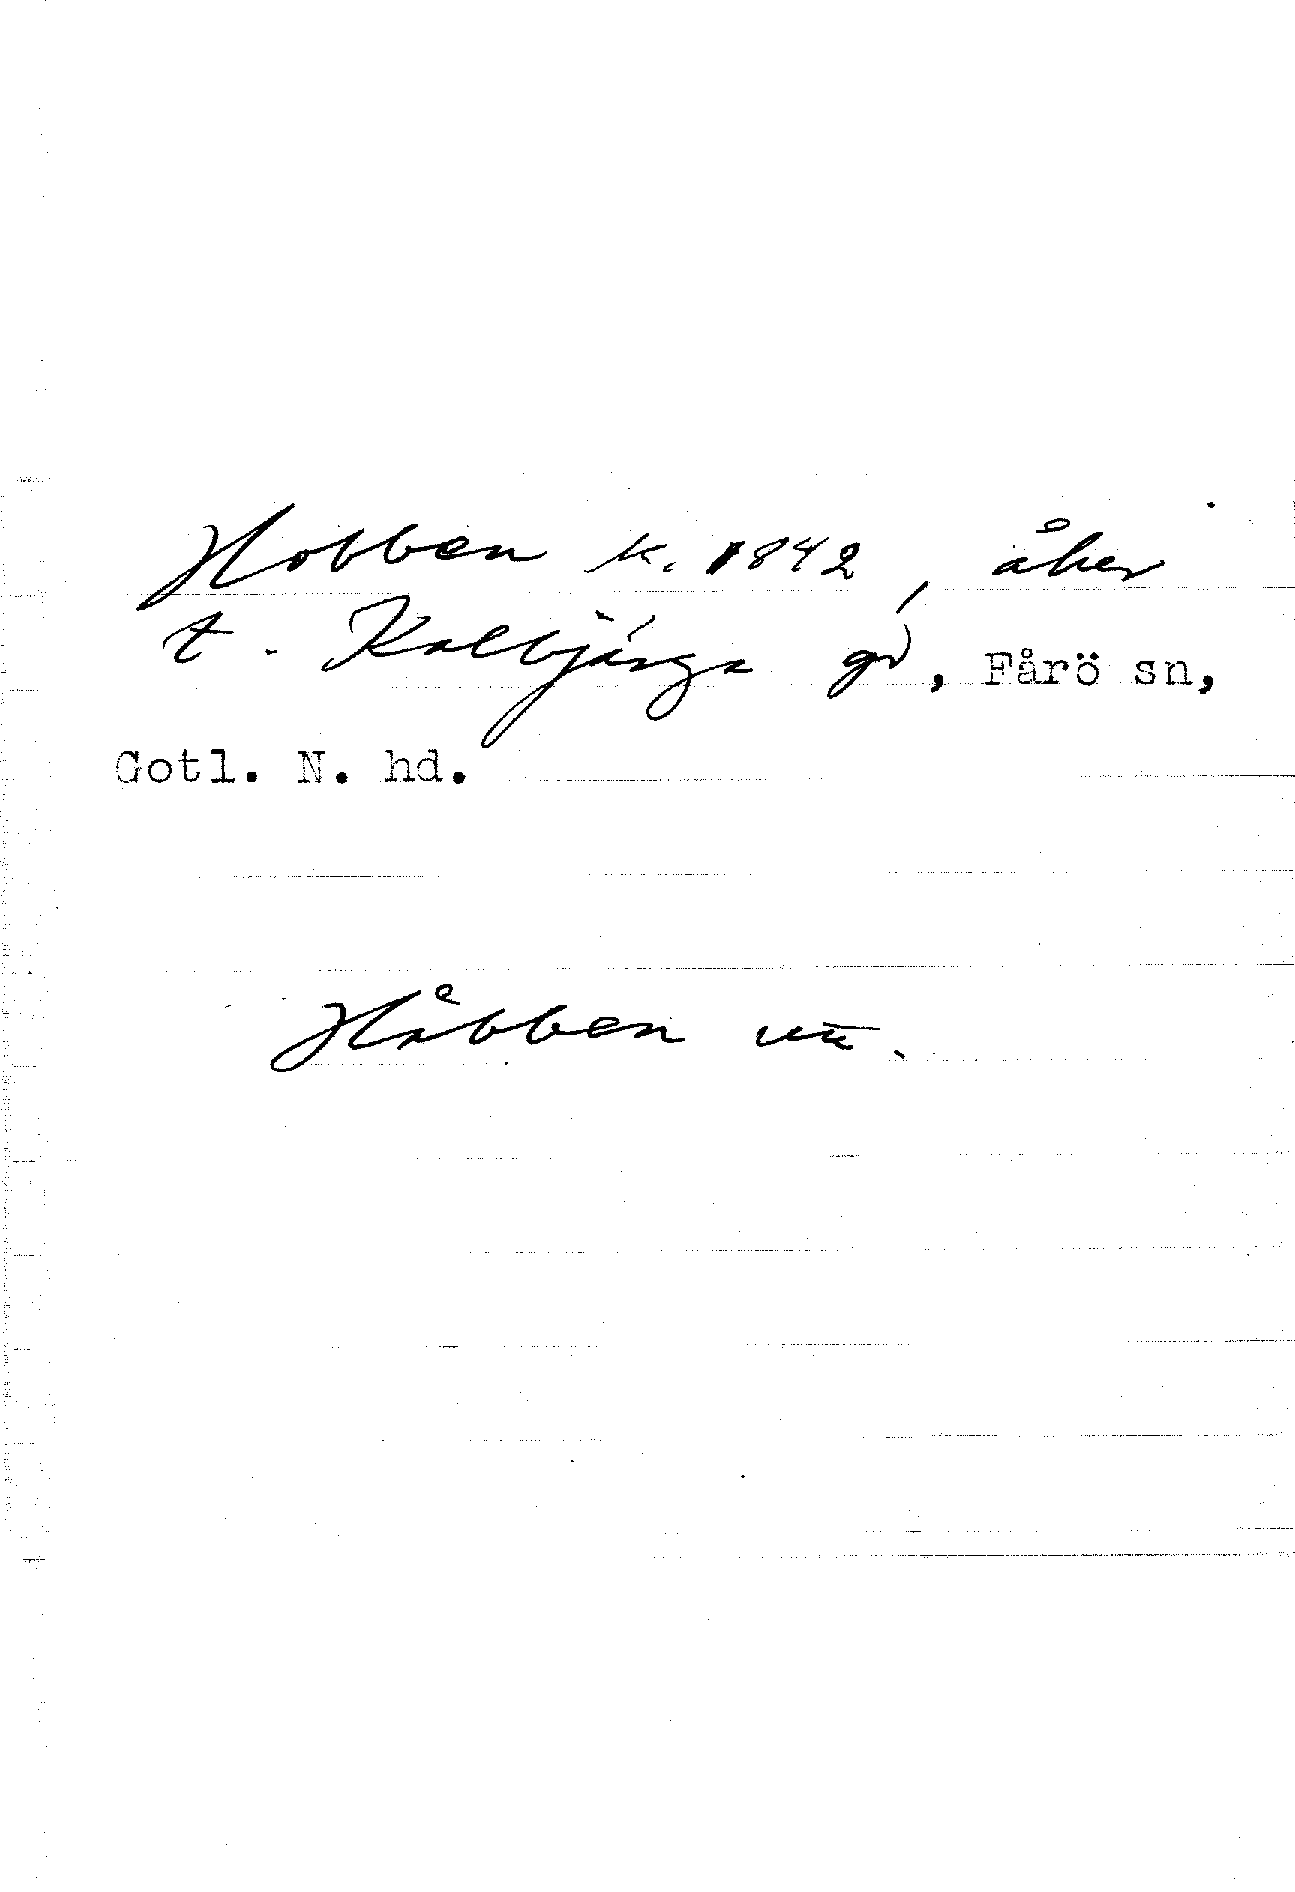 Hobben k. 1842, åker
t. Kalbjärga gd, Fårö sn,
Gotl. N. hd.
Håbben